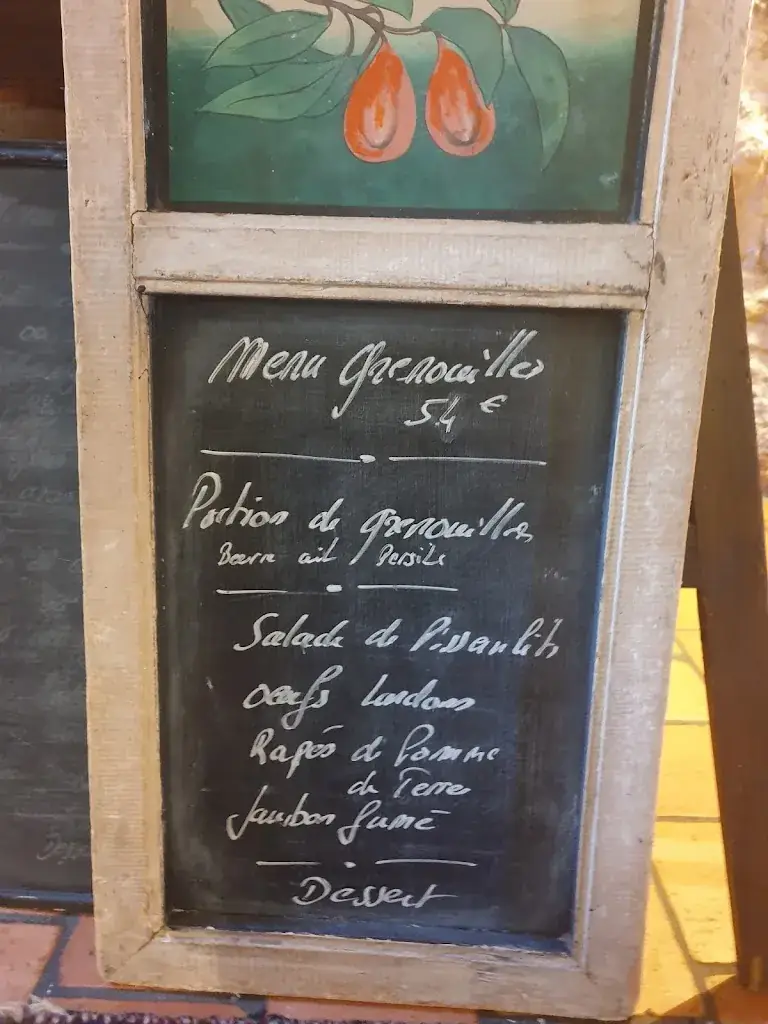 Menu Grenouilles
54 €
Portion de grenouilles
Beurre ail Persils
Salade de Pissenlits
Oeufs lardons
Rapés de Pomme
de Terre
Jambon fumé
Dessert